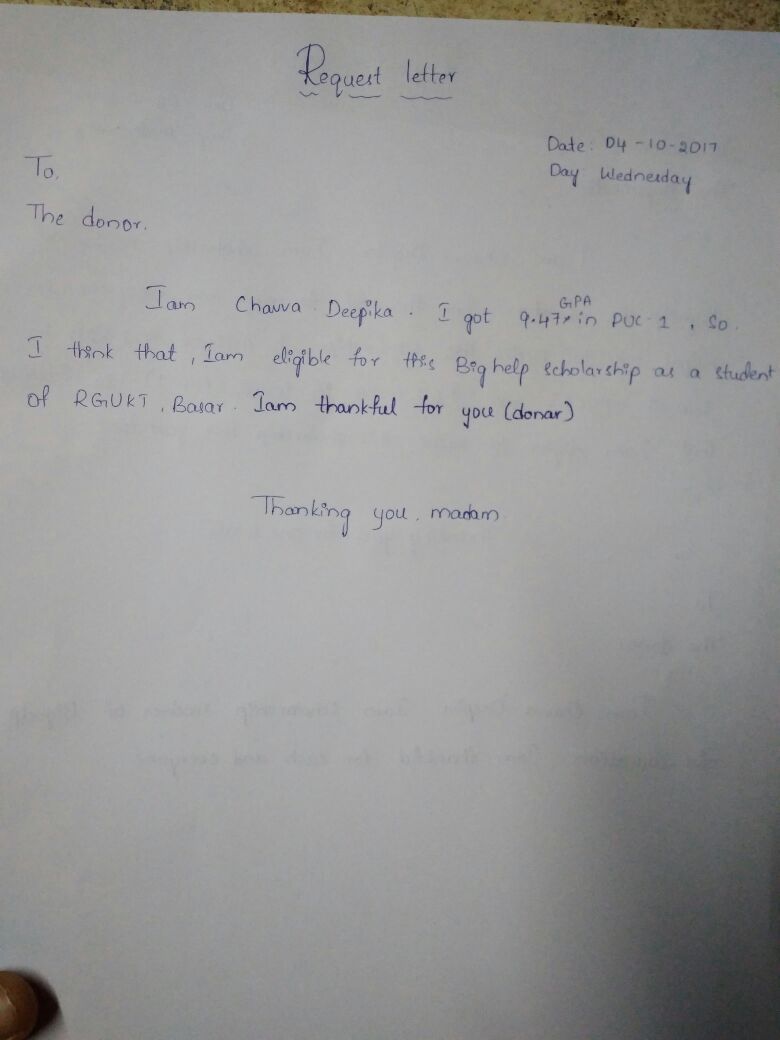 Request letter
Date: 04-10-2017
Day Wednesday
To,
The donor.
Iam Chavva Deepika. I got 9.47 GPA in PUC-1, so.
I think that, Iam eligible for this Big help scholarship as a student
of RGUKT, Basar. Iam thankful for you (donar)
Thanking you, madam